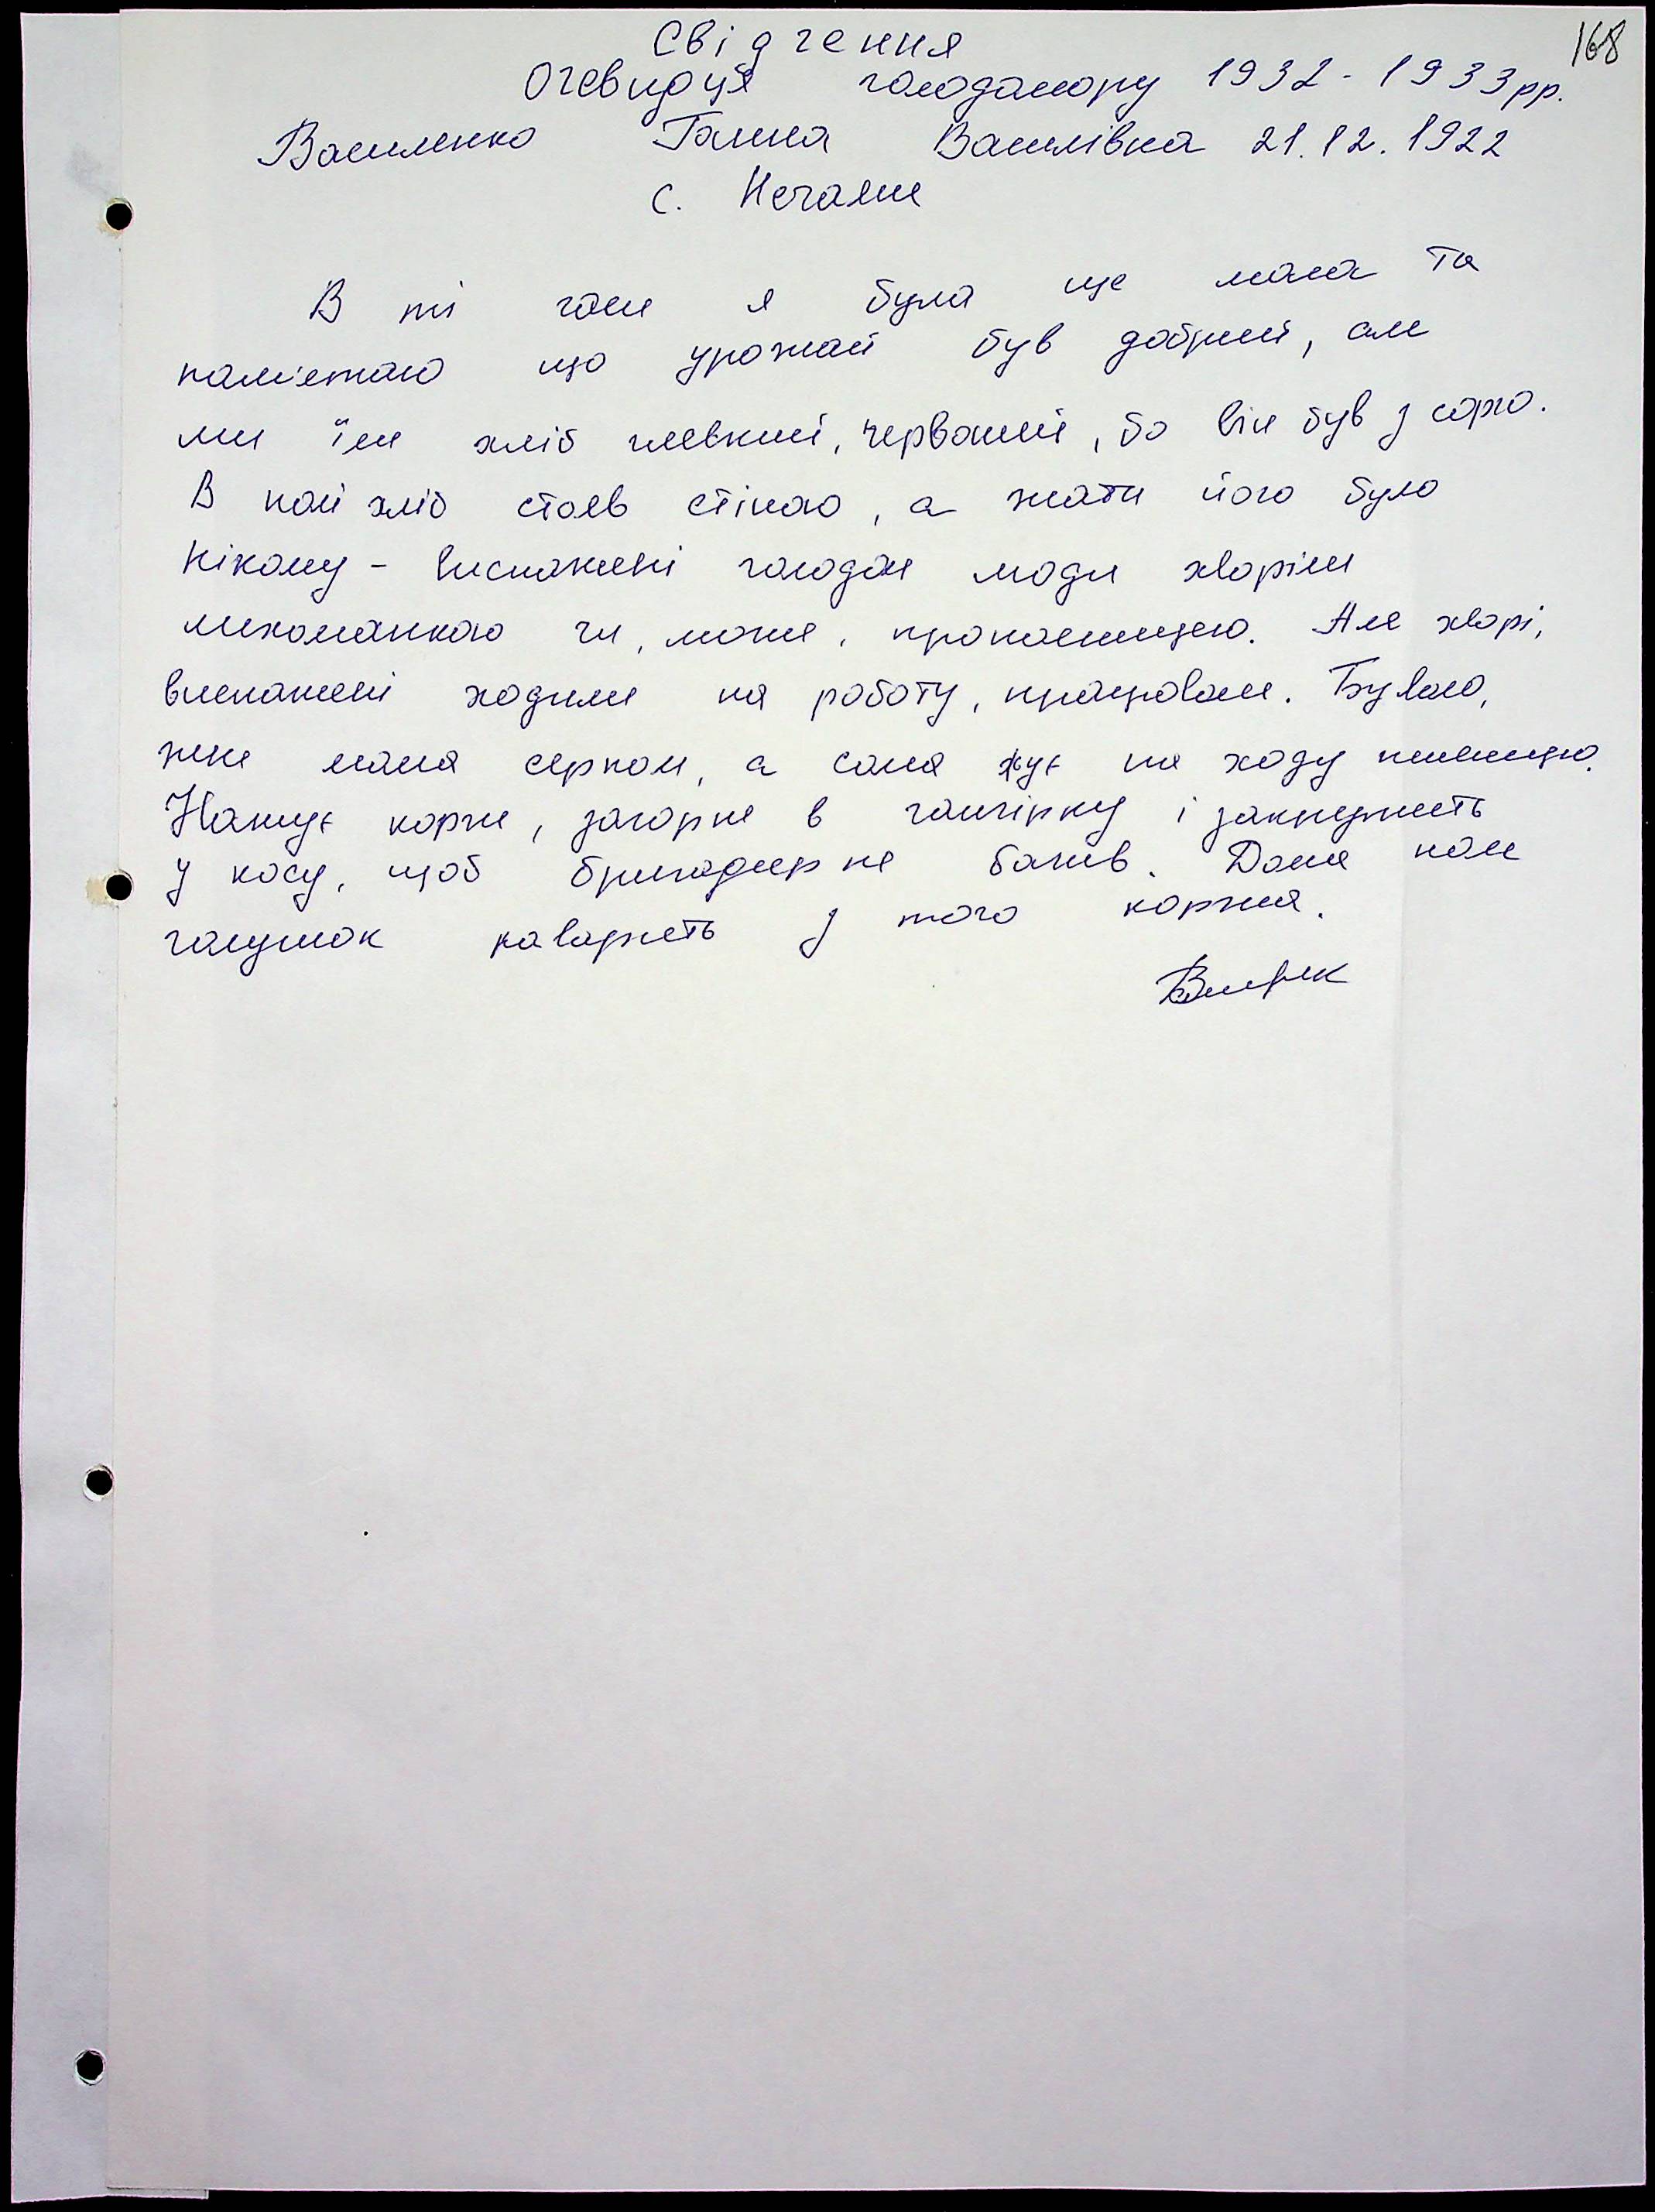 168
Свідчення
Очевидця голодомору 1932-1933рр.
Василенко Ганна Василівна 21.12.1922
с. Нечаяне
В ті часи я була ще мала та
пам'ятаю що урожай був добрий, але
ми їли хліб глевкий, червоний, бо він був з сорго.
В полі хліб стояв стіною, а жати його було
нікому - виснажені голодом люди хворіли
лихоманкою чи, може, пропасницею. Але хворі,
виснажені ходили на роботу, працювали. Бувало,
жне мама серпом, а сама жує на ходу пшеницю.
Нажує корже, загорне в ганчірку і закрутить
у косу, щоб бригадир не бачив. Дома нам
галушок наварить з того коржа.